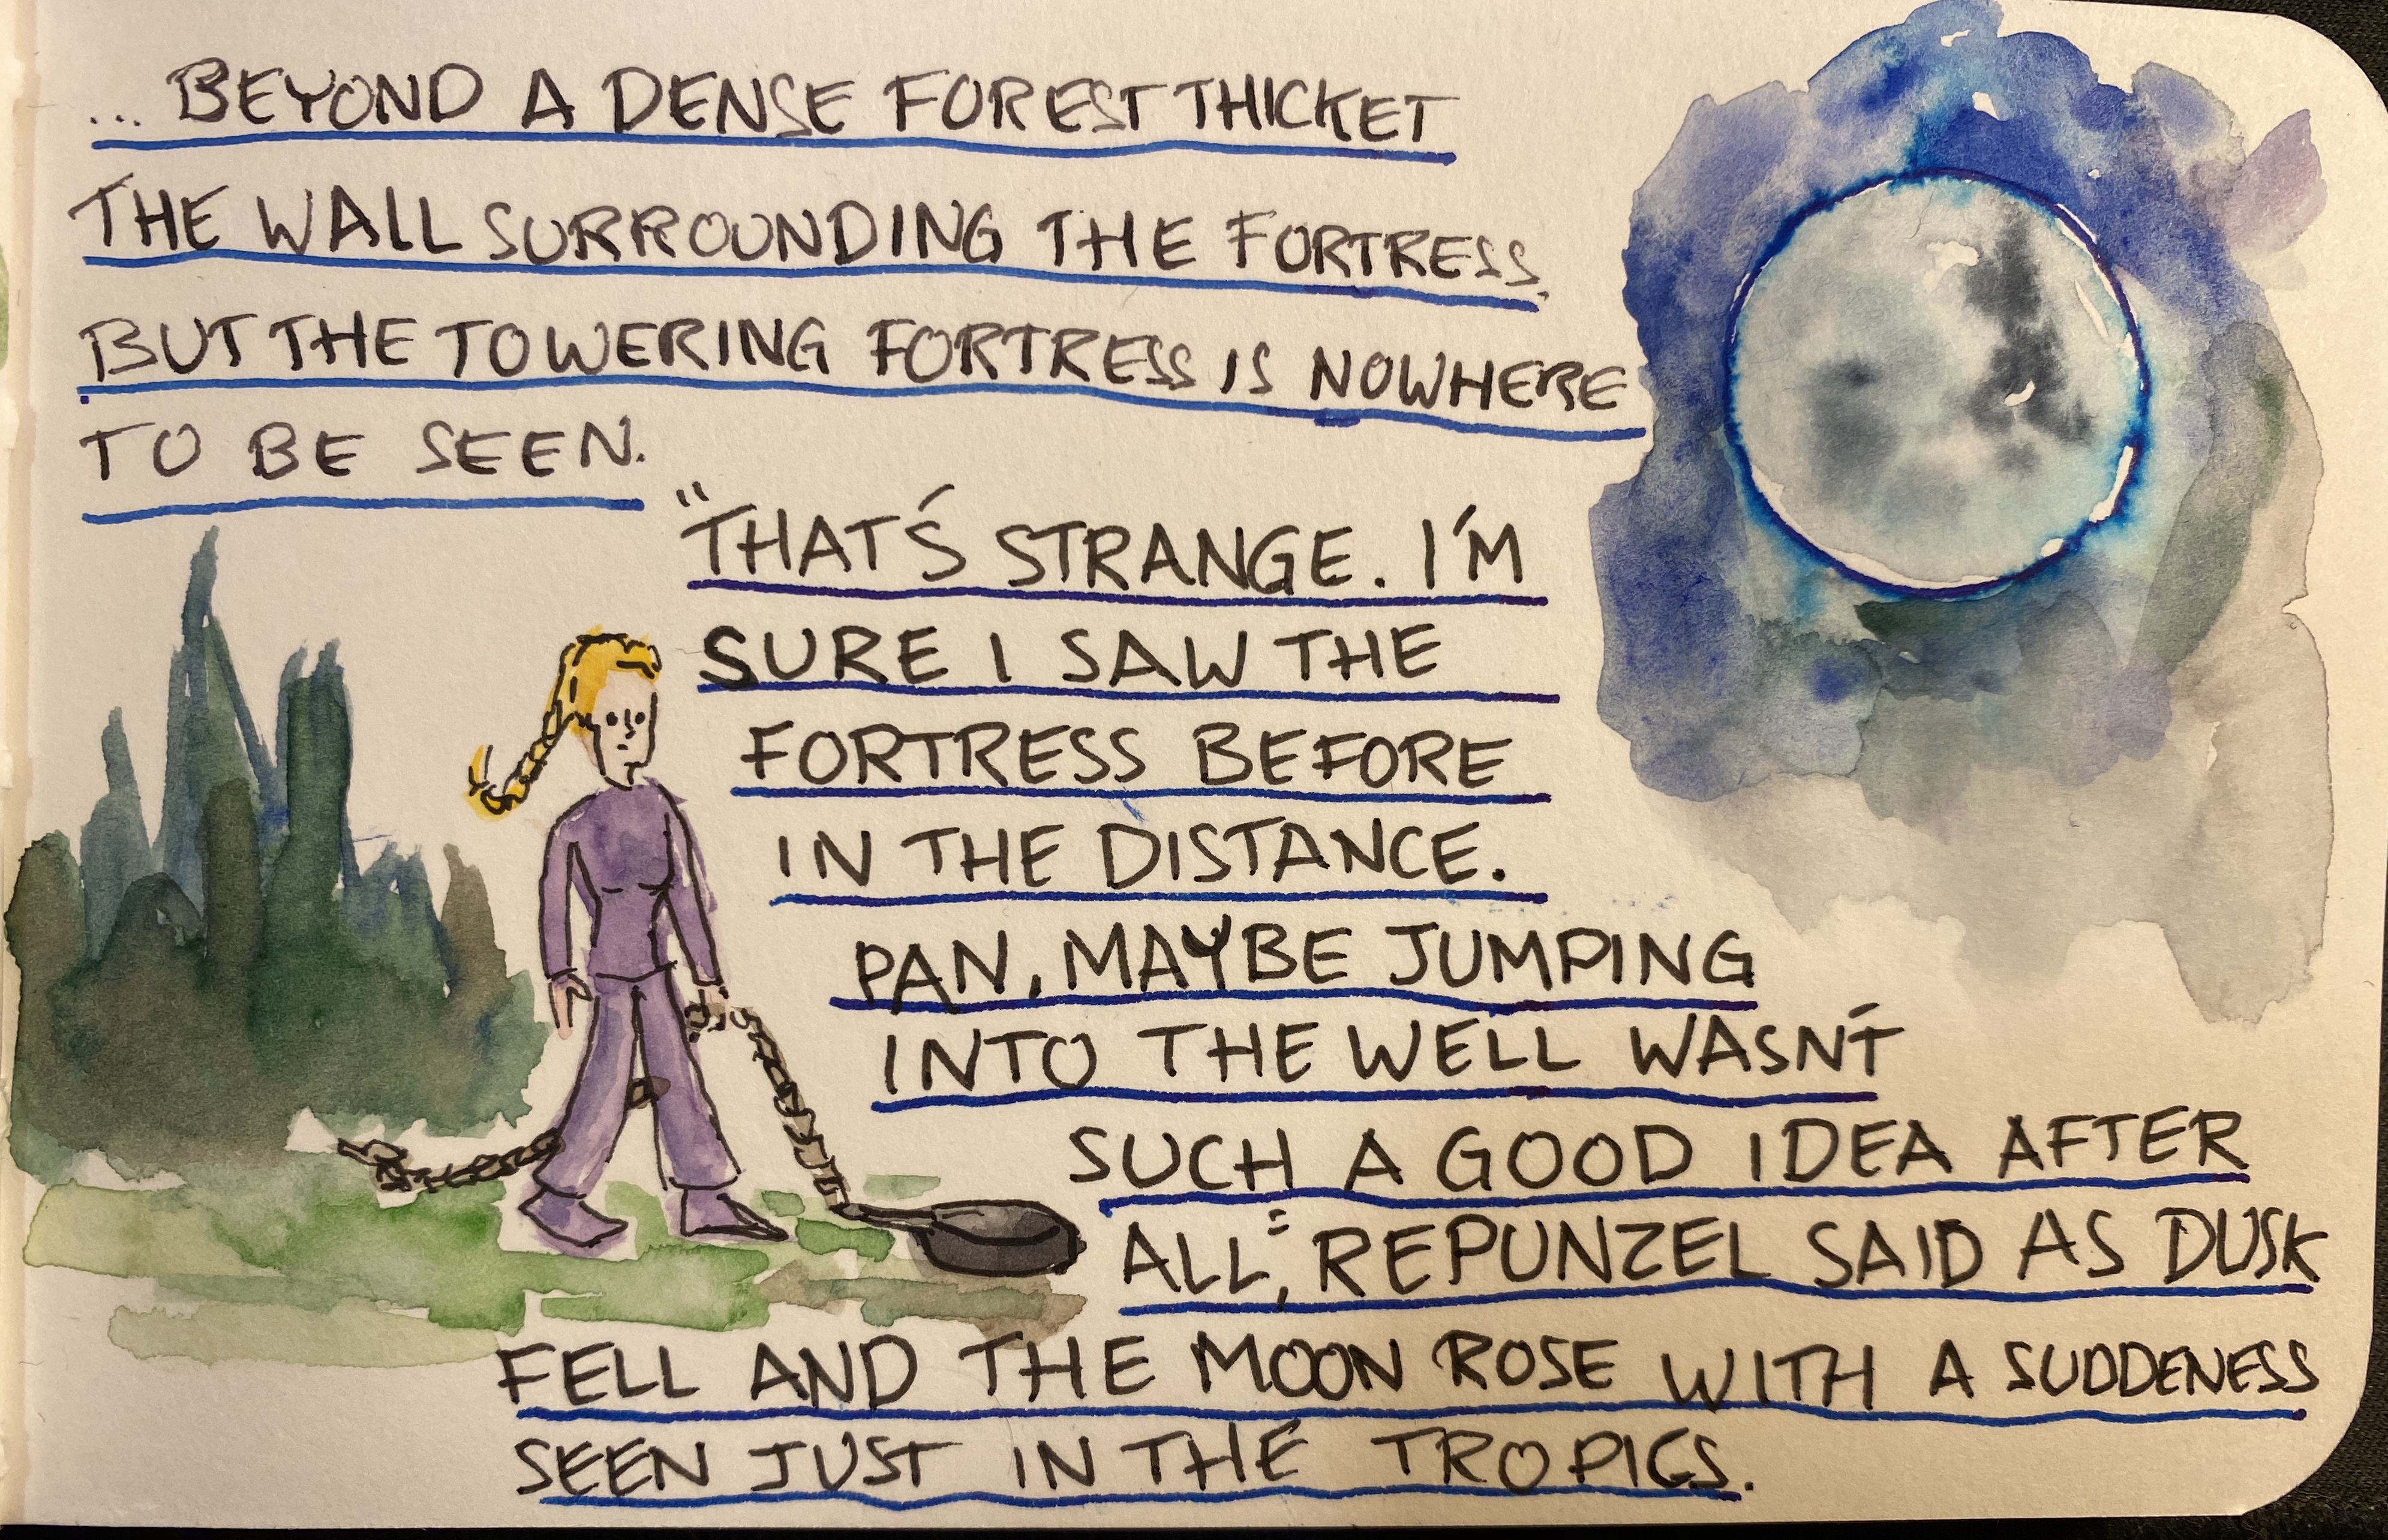 ... BEYOND A DENSE FOREST THICKET
THE WALL SURROUNDING THE FORTRESS.
BUT THE TOWERING FORTRESS IS NOWHERE
TO BE SEEN.
"THAT'S STRANGE. I'M
SURE I SAW THE
FORTRESS BEFORE
IN THE DISTANCE.
PAN, MAYBE JUMPING
INTO THE WELL WASN'T
SUCH A GOOD IDEA AFTER
ALL", REPUNZEL SAID AS DUSK
FELL AND THE MOON ROSE WITH A SUDDENESS
SEEN JUST IN THE TROPICS.